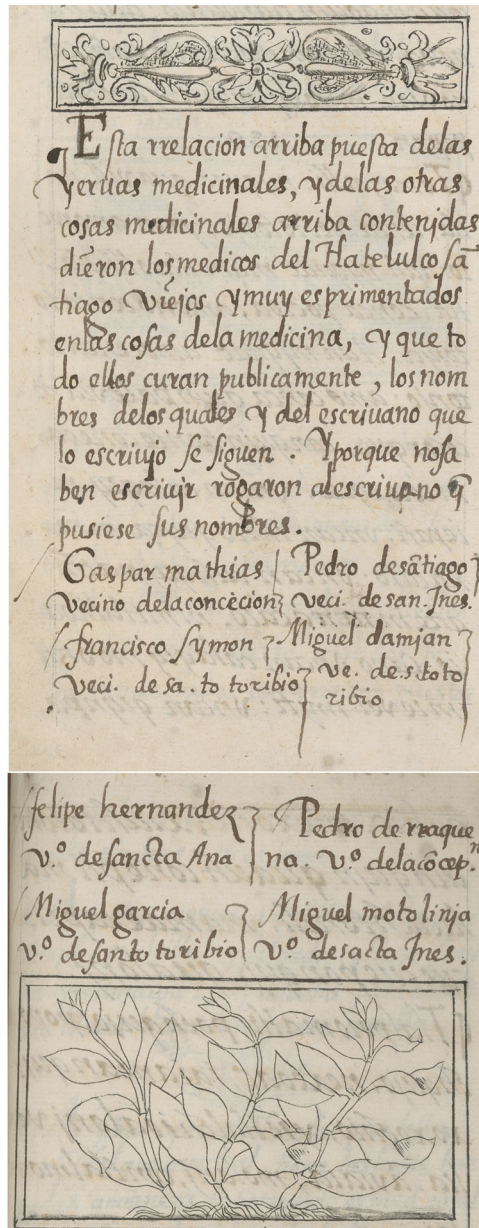 Esta rrelacion arriba puesta delas
yeruas medicinales, y delas otras
cosas medicinales arriba contenjdas
dieron los medicos del tlatelulco sã
tiago viejos y muy esprimentados
en las cosas dela medicina, y que to
do ellos curan publicamente, los nom
bres delos quales y del escriuano que
lo escriujo se siguen. Y porque no sa
ben escriujr rogaron al escriuano q̃
pusiese sus nombres.
Gaspar mathias
vecino dela concecion
Pedro de sãtiago
veci. de san. Jnes.
francisco symon
veci. de sa. to toribio
Miguel damjan
ve. de s. to to
ribio
felipe hernandez
v.º de sancta Ana
Pedro de rraque
na. v.º dela cõcep.n
Miguel garcia
v.º de santo toribio
Miguel motolinja
vº de sãcta Jnes.